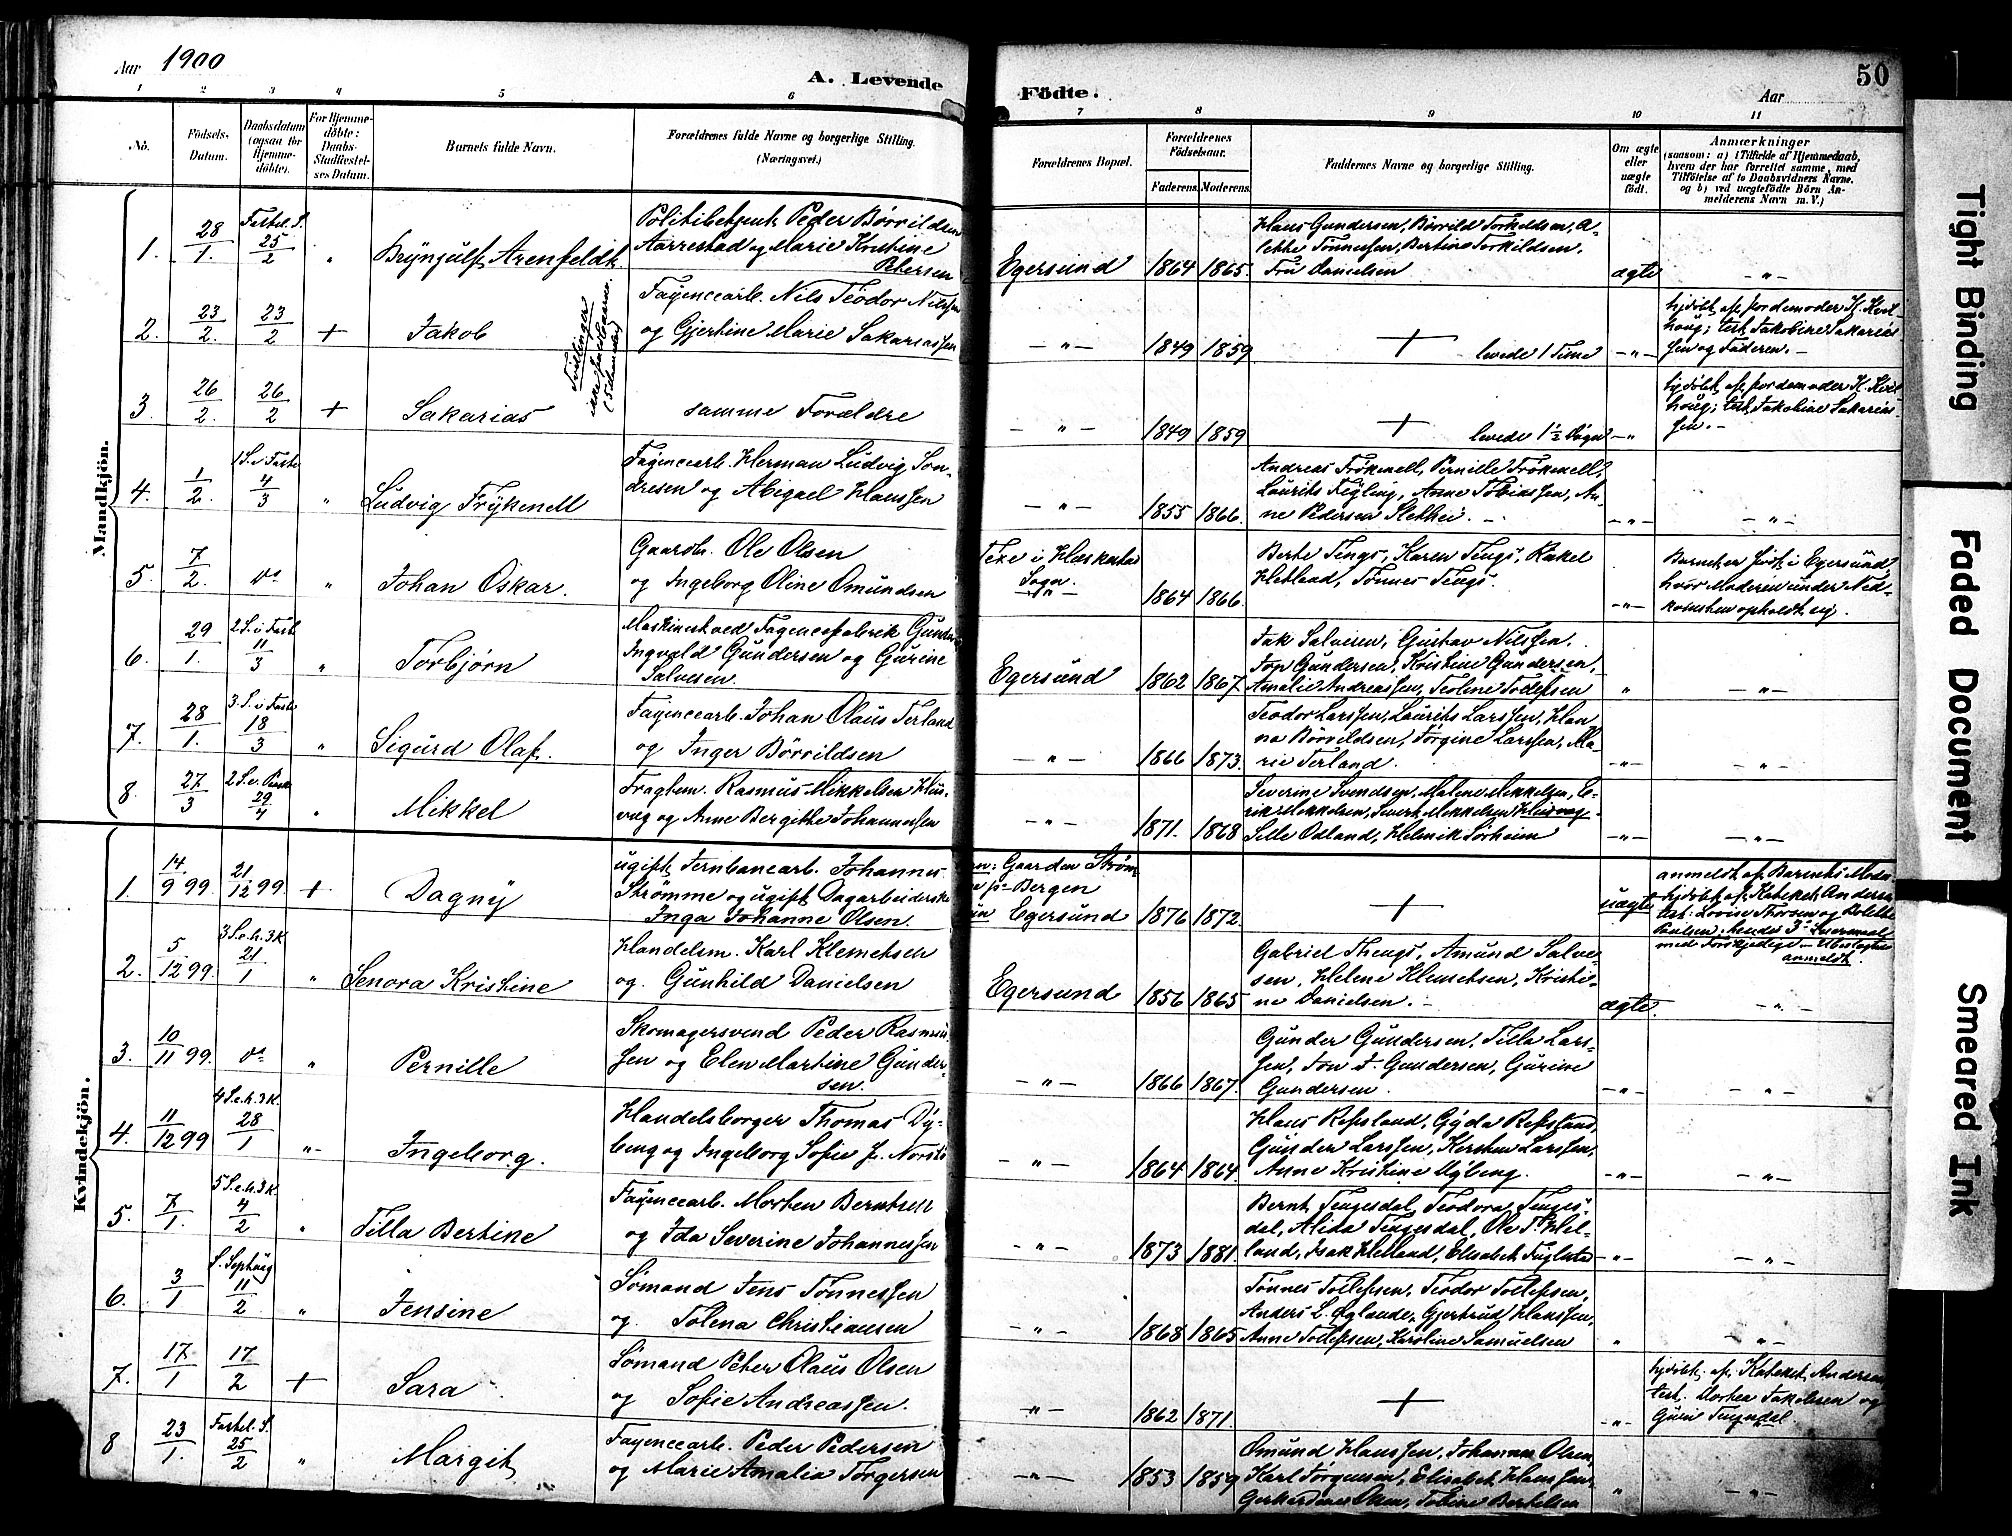 Aar 1900
A. Levende
Födte.
50
Aar
1 2 3 4 5 6 7 8 9 10 11
No.
Födsels-
Datum.
Daabsdatum
(ogsaa for
Hjemme-
döbte).
For Hjemme-
döbte:
Daabs-
Stadfæstel-
ses Datum.
Barnets fulde Navn.
Forældrenes fulde Navne og borgerlige Stilling.
(Næringsvei.)
Forældrenes Bopæl.
Forældrenes
Födselsaar.
Faderens. Moderens.
Faddernes Navne og borgerlige Stilling.
Om ægte
eller
uægte
født.
Anmærkninger
(saasom: a) i Tilfælde af Hjemmedaab,
hvem der har forrettet samme, med
Tilföielse af to Daabsvidners Navne.
og b) ved uægtefödte Börn An-
melderens Navn m. V.)
Mandkjön.
1. 28/1. Fastel. S. 25/2 " Brynjulf Arenfeldt
Politibetjent Peder Börrildsen
Aarrestad og Marie Kristine
Petersen
Egersund 1864 1865.
Hans Gundersen, Börrild Torkildsen, A-
Tönnessen, Bertine Torkildsen,
Fru Danielsen
ægte — " —
2. 23/2. 23/2 + Jakob
Tvillinger
Fayencearb. Nils Teodor Nilssen
og Gjertine Marie Sakariassen
— " — 1849 1859 + levede 1 Time — " —
hjdöbt af Jordemoder H. Kvel-
houg; test. Jakobine Sakarias
sen og Faderen. —
3. 26/2. 26/2 + Sakarias
samme Forældre
— " — 1849 1859 + levede 1½ Dögn — " —
hjdöbt af Jordemoder H. Kvel
houg; test. Jakobine Sakarias
sen. —
4. 1/2. 1 S. i Faste 4/3 " Ludvig Frykmell
Fayencearb. Herman Ludvig Son-
dresen og Abigael Hanssen
— " — 1855 1866.
Andreas Frökmell, Pernille Frökmell,
Laurits Fegling, Anne Tobiassen, An-
ne Pedersen Slettei. —
— " — — " —
5. 7/2. do " Johan Oskar.
Gaardb. Ole Olsen
og Ingeborg Oline Omundsen
i Heskestad
Sogn.
1864 1866.
Berte Tengs, Karen Tengs, Rakel
Hetland, Tönnes Tengs.
— " —
Barnet er födt i Egersund,
hvor Moderen under Ned-
komsten opholdt sig.
6. 29/1. 2 S. i Faste 11/3 " Torbjörn
Maskinist ved Fayencefabrik Gunder
Ingvald Gundersen og Gurine
Salvesen.
Egersund 1862 1867
Jak Salvesen, Gustav Nilssen,
Jon Gundersen, Kristine Gundersen,
Amalie Andreassen, Teoline Tollefsen
" — " —
7. 28/1. 3. S. i Faste 18/3 " Sigurd Olaf.
Fayencearb. Johan Olaus Terland
og Inger Börrildsen
— " — 1866 1873.
Teodor Larssen, Laurits Larssen, Han
na Börrildsen, Jörgine Larssen, Ma-
rie Terland.
— " — — " —
8. 27/3 2 S. e. Paaske 29/4 " Mikkel
Fragtem. Rasmus Mikkelsen Hus-
væg og Anne Bergitte Johannessen
— " — 1871. 1868
Severine Svendsen, Malene Mikkelsen, E-
rik Mikkelsen, Sivert Mikkelsen Husvæg
Sille Odland, Helmik Sörheim
— " — — " —
Kvindekjön.
1. 14/9 99. 21/12 99. + Dagny
ugift Jernbanearb. Johannes
Strömme og ugift Dagarbeiderske
Inga Johanne Olsen.
Gaarden Ström
Bergen
Egersund 1876 1872. + uægte
anmeldt af Barnets Moder
hjdöbt af Kateket Andersen
test: Lovise Thorsen og Bolette
Paulsen. Hendes 3die Leiermaal
med Forskjellige — Ubeslægtet
anmeldt.
2. 5/12 99 3 S. e. h. 3 K. 21/1 " Senora Kristine
Handelsm. Karl Klemetsen
og Gunhild Danielsen
Egersund 1856 1865
Gabriel Thengs, Amund Salve
sen, Helene Klemetsen, Kristi-
ne Danielsen. —
ægte. — " —
3. 10/11 99. do " Pernille
Skomagersvend Peder Rasmus
sen og Elen Martine Gunder-
sen.
— " — 1866 1867.
Gunder Gundersen, Tilla Lars-
sen, Jon J. Gundersen, Gurine
Gundersen.
— " — — " —
4. 11/12 99 4 S. e. h. 3 K. 28/1 " Ingeborg.
Handelsborger Thomas Dy-
berg og Ingeborg Sofie f.
— " — 1864 1864.
Hans Refsland, Gyda Refsland,
Gunder Larssen, Kirsten Larssen,
Anne Kristine Dyberg.
— " — — " —
5. 7/1. 5 S. e. h. 3 K. 4/2 " Tilla Bertine
Fayencearb. Morten Berntsen
og Ida Severine Johannessen
— " — 1873 1881.
Bernt Tengesdal, Teodora Tenges-
dal, Alida Tengesdal, Ole T. Hel-
land, Isak Helland, Elisabet Fuglestad
— " — — " —
6. 3/1 S. Septuag 11/2 " Jensine
Sömand Jens Tönnessen
og Tolena Christiansen
— " — 1868 1865
Tönnes Tollefsen, Teodor Tollefsen,
Anders L. Øglænde, Gjertrud Hanssen,
Anne Tollefsen, Karoline Samuelsen
" — " —
7. 17/1 17/2 + Sara
Sömand Peter Olaus Olsen
og Sofie Andreassen.
— " — 1862 1871. + — " —
hjdöbt af Kateket Andersen,
test. Dortea Jakobsen og
Guri Tengesdal.
8 23/1. Fastel. S. 25/2 " Margit
Fayencearb. Peder Pedersen
og Marie Amalia Törgersen
— " — 1853 1859
Omund Hanssen, Johannes Olsen,
Karl Jörgensen, Elisabet Hanssen,
Olsen, Tobine Bertelsen
" — " —
Tight Binding
Faded Document
Smeared Ink